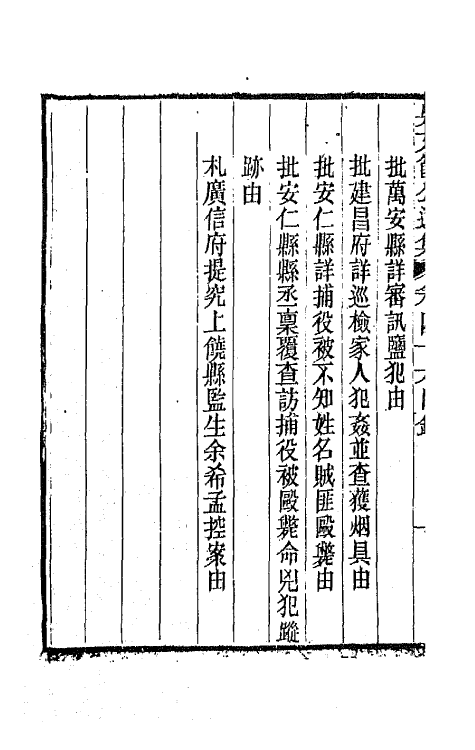 批萬安縣詳審訊鹽犯由
批建昌府詳巡檢家人犯姦並查獲烟具由
批安仁縣詳捕役被不知姓名賊匪毆斃由
批安仁縣縣丞稟覆查訪捕役被毆斃命兇犯蹤
跡由
札廣信府提究上饒縣監生余希孟控案由